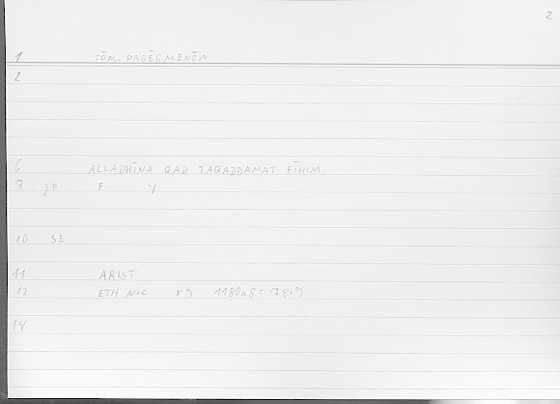 2
1 TŌN PROĒGMENŌN
2
6 ALLADHĪNA QAD TAQADDAMAT FĪHIM
7 F Y
10 SE
11 ARIST
12 ETH NIC X 9 1180a8 =
14